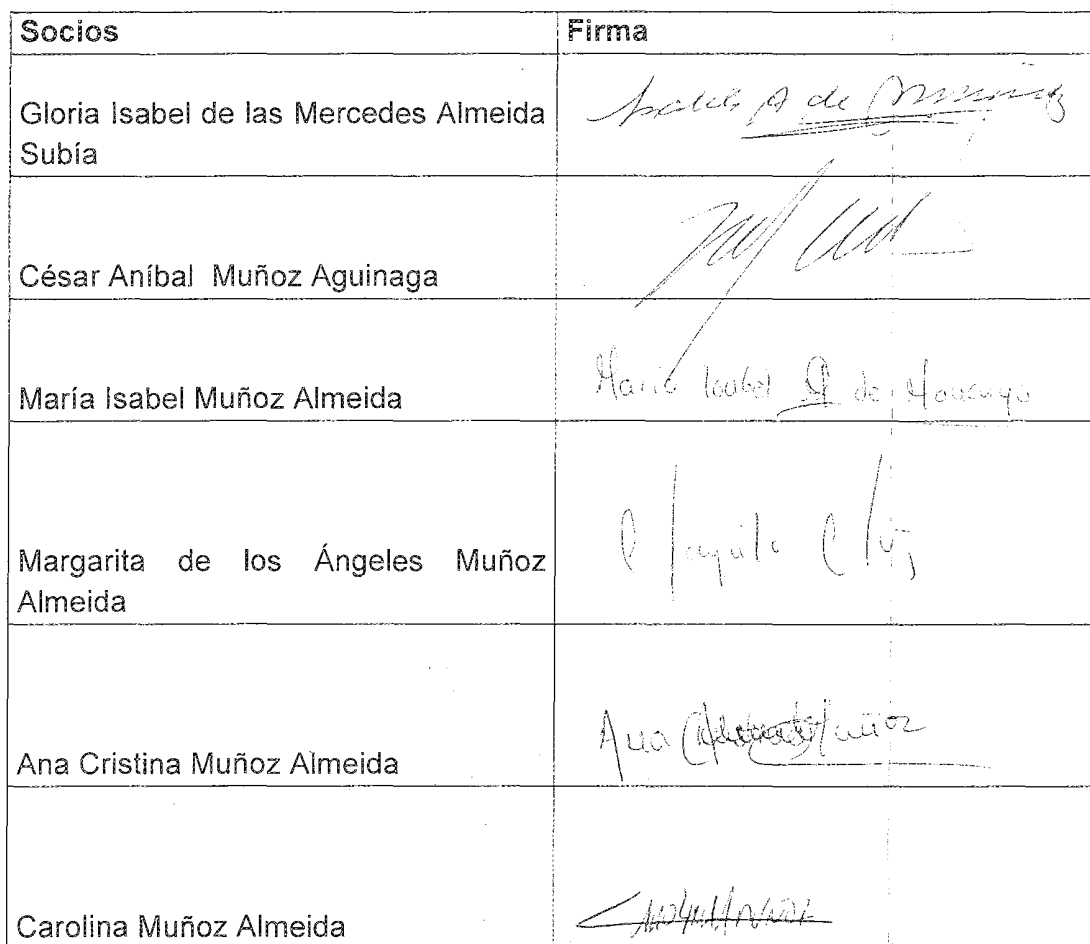 Socios Firma
Gloria Isabel de las Mercedes Almeida
Subía
Isabel A de Muñoz
César Aníbal Muñoz Aguinaga
María Isabel Muñoz Almeida
Maria Isabel M de Moncayo
Margarita de los Ángeles Muñoz
Almeida
Ana Cristina Muñoz Almeida
Ana Muñoz
Carolina Muñoz Almeida